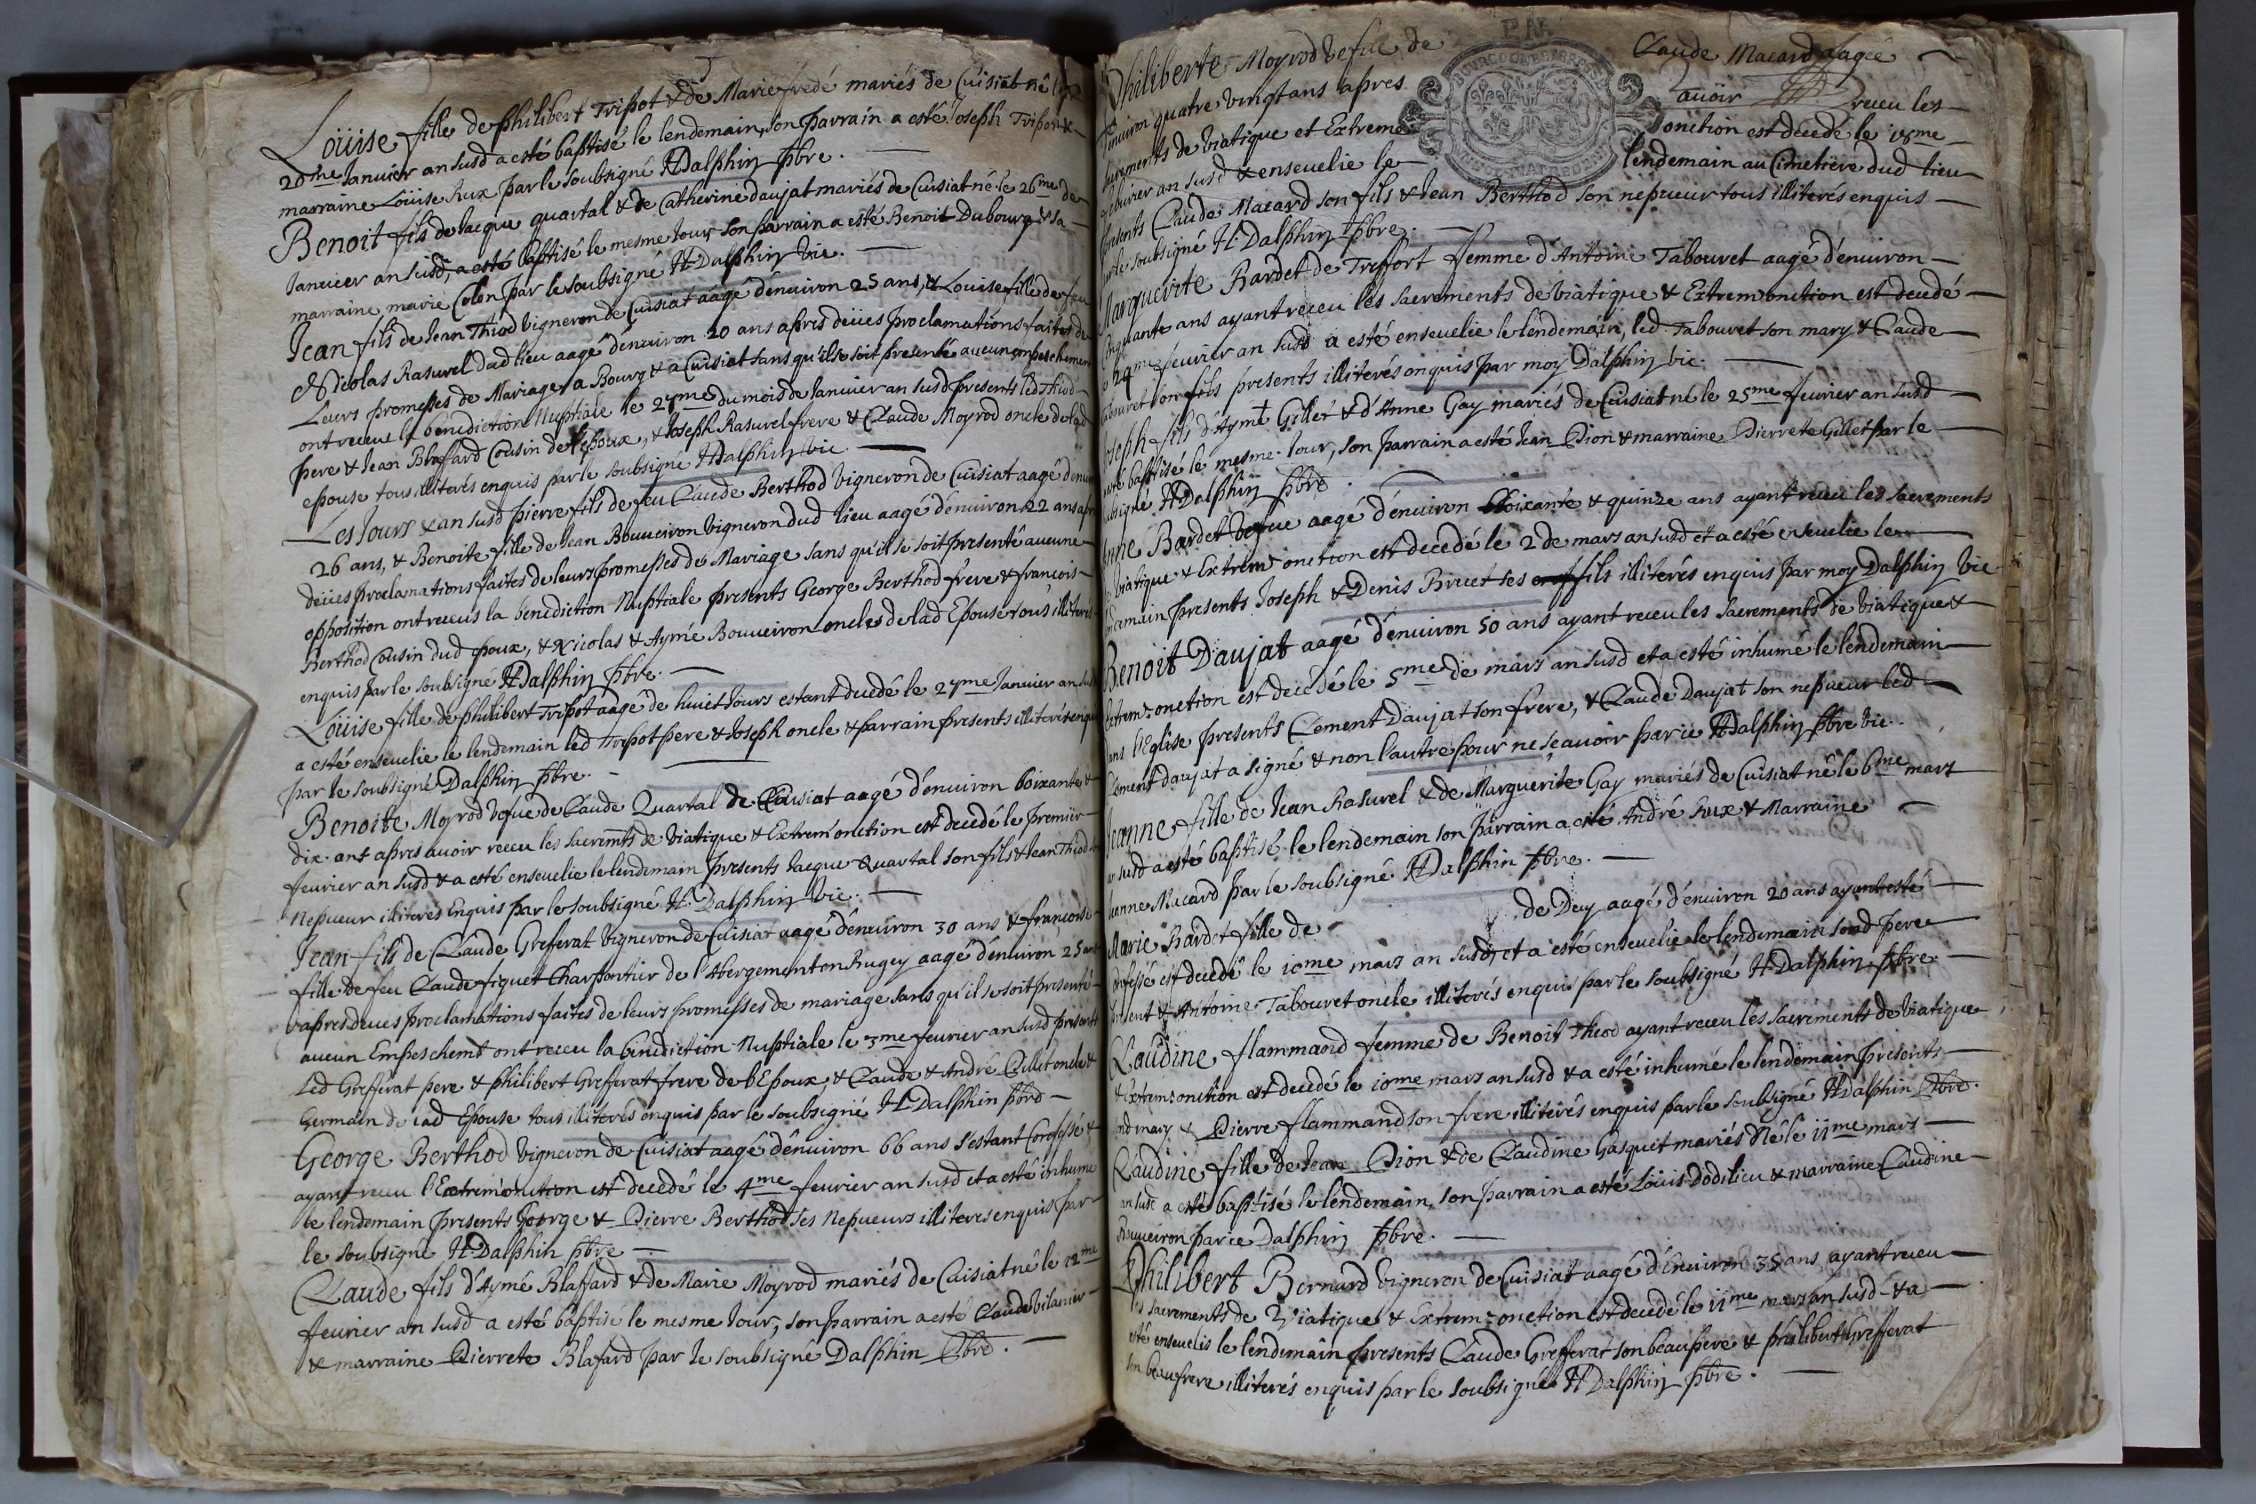 Loüise fille de philibert Tripot & de Marie fredé mariés de Cuisiat né le
20me Ianuier an susd a esté baptisé le lendemain, son parrain a esté Ioseph Tripot &
marraine Loüise Rux par le soubsigné HDalphin pbre.
Benoit fils de Iacque quartal & de Catherine daujat mariés de Cuisiat né le 26me de
Ianuier an susd, a esté baptisé le mesme Iour, son parrain a esté Benoit Dubourg & sa
marraine marie Colon par le soubsigné H Dalphin vic.
Iean fils de Iean Thiod vigneron de Cuisiat aagé d'enuiron 25 ans, & Louise fille de feu
Nicolas Rasurel dud lieu aagé d'enuiron 20 ans apres deües proclamations faites de
Leurs promesses de Mariage a Bourg & a Cuisiat sans qu'il se soit presenté aucun empeschement
ont receu la benediction Nuptiale le 27me du mois de Ianuier an susd presents led Thiod
pere & Iean Blaffard Cousin de l'Epoux, & Ioseph Rasurel frere & Claude Moyrod oncle de lad
epouse tous illiterés enquis par le soubsigné HDalphin vic
Les Iours & an susd pierre fils de feu Claude Berthod vigneron de Cuisiat aagé d'enuiron
26 ans, & Benoite fille de Iean Bouueiron vigneron dud lieu aagé d'enuiron 22 ans apres
deües proclamations faites de leurs promesses de Mariage sans qu'il se soit presenté aucune
opposition ont receus la benediction Nuptiale presents George Berthod frere & francois
Berthod Cousin dud epoux, & Nicolas & Aymé Bouueiron oncles de lad Epouse tous illiterés
enquis par le soubsigné HDalphin pbre.
Loüise fille de philibert Tripot aagé de huict Iours estant decedé le 27me Ianuier an susd
a esté enseuelie le lendemain led Tripot pere & Ioseph oncle & parrain presents illiterés enquis
par le soubsigné Dalphin pbre.
Benoite Moyrod vefue de Claude Quartal de Cuisiat aagé d'enuiron soixante &
dix ans apres auoir receu les sacremts de viatique & Extrem'onction est decedé le premier
feurier an susd & a esté enseuelie le lendemain presents Iacque Quartal son fils & Iean Thiod son
Nepueur illiterés Enquis par le soubsigné H. Dalphin vic.
Iean fils de Claude Grefferat vigneron de Cuisiat aagé d'enuiron 30 ans & francoise
fille de feu Claude figuet Charpontier de l'Abergement en Bugey aagé d'enuiron 25 ans
apres deues proclamations faites de leurs promesses de mariage sans qu'il se soit presenté
aucun Empeschemt ont receu la benediction Nuptiale le 3me feurier an susd presents
Led Grefferat pere & philibert Grefferat frere de l'Epoux, & Claude & André Cillet oncle &
Germain de lad Epouse tous illiterés enquis par le soubsigné H Dalphin pbre
George Berthod vigneron de Cuisiat aagé d'enuiron 66 ans s'estant Confessé &
ayant receu l'Extrem'onction est decedé le 4me feurier an susd et a esté inhumé
le lendemain presents George & Pierre Berthod ses Nepueurs illiteres enquis par
le soubsigné H Dalphin pbre
Claude fils d'Aymé Blaffard & de Marie Moyrod mariés de Cuisiat né le 12me
feurier an susd a esté baptisé le mesme Iour, son parrain a esté Claude vilanier
& marraine Pierrete Blafard par le soubsigné Dalphin Pbre.
Philiberte Moyrod vefue de Claude Macard aagée
d'enuiron quatre vingt ans apres auoir receu les
sacrements de viatique et Extreme onction est decedé le 18me
feburier an susd & enseuelie le lendemain au Cimetiere dud lieu
presents Claude Macard son fils & Iean Berthod son nepueur tous illiterés enquis
par le soubsigné H. Dalphin Pbre.
Marguerite Bardet de Treffort femme d'Antoine Tabouret aagé d'enuiron
Cinquante ans ayant receu les sacrements de viatique & Extrem onction est decedé
le 24me feurier an susd a esté enseuelie le lendemain, led Tabouret son mary & Claude
Tabouret son fils presents illiterés enquis par moy Dalphin vic.
Ioseph fils d'Aymé Gillet & d'Anne Gay mariés de Cuisiat né le 25me feurier an susd
a esté baptisé le mesme Iour, son parrain a esté Iean Pion & marraine Pierrete Gillet par le
soubsigné HDalphin pbre.
Anne Bardet vefue aagé d'enuiron soixante & quinze ans ayant receu les sacrements
de viatique & Extrem'onction est decedé le 2 de mars an susd et a esté enseuelie le
lendemain presents Ioseph & Denis Bruet ses fils illiterés enquis par moy Dalphin vic
Benoit Daujat aagé d'enuiron 50 ans ayant receu les sacrements de viatique &
Extrem=onction est decedé le 5me de mars an susd et a esté inhumé le lendemain
dans l'Eglise presents Clement Daujat son frere, & Claude Daujat son nepueur led
Clement daujat a signé & non l'autre pour ne sçauoir par ie HDalphin pbre vic.
Ieanne fille de Iean Rasurel & de Marguerite Gay mariés de Cuisiat né le 6me mars
an susd a esté baptisé le lendemain son parrain a esté André Rux & Marraine
Ieanne Macard par le soubsigné HDalphin pbre.
Marie Bardet fille de de Duy aagé d'enuiron 20 ans ayant esté
confessé est decedé le 10me mars an susd, et a esté enseuelie le lendemain sond pere
present & Antoine Tabouret oncle illiterés enquis par le soubsigné H Dalphin pbre.
Claudine flammand femme de Benoit Thiod ayant receu les sacrements de viatique
& Extrem=onction est decedé le 10me mars an susd & a esté inhumé le lendemain presents
sond mary & Pierre flammand son frere illiterés enquis par le soubsigné HDalphin Pbre.
Claudine fille de Iean Pion & de Claudine Gasquit mariés Né le 11me mars
an susd a esté baptisé le lendemain, son parrain a esté Louis Dodilieu & marraine Claudine
Bouueiron par ie Dalphin pbre.
Philibert Bernard vigneron de Cuisiat aagé d'enuiron 35 ans ayant receu
les sacrements de Viatique & Extrem=onction est decedé le 11me mars an susd & a
esté enseuelis le lendemain presents Claude Grefferat son beaupere & philibert Grefferat
son beaufrere illiterés enquis par le soubsigné H Dalphin pbre.